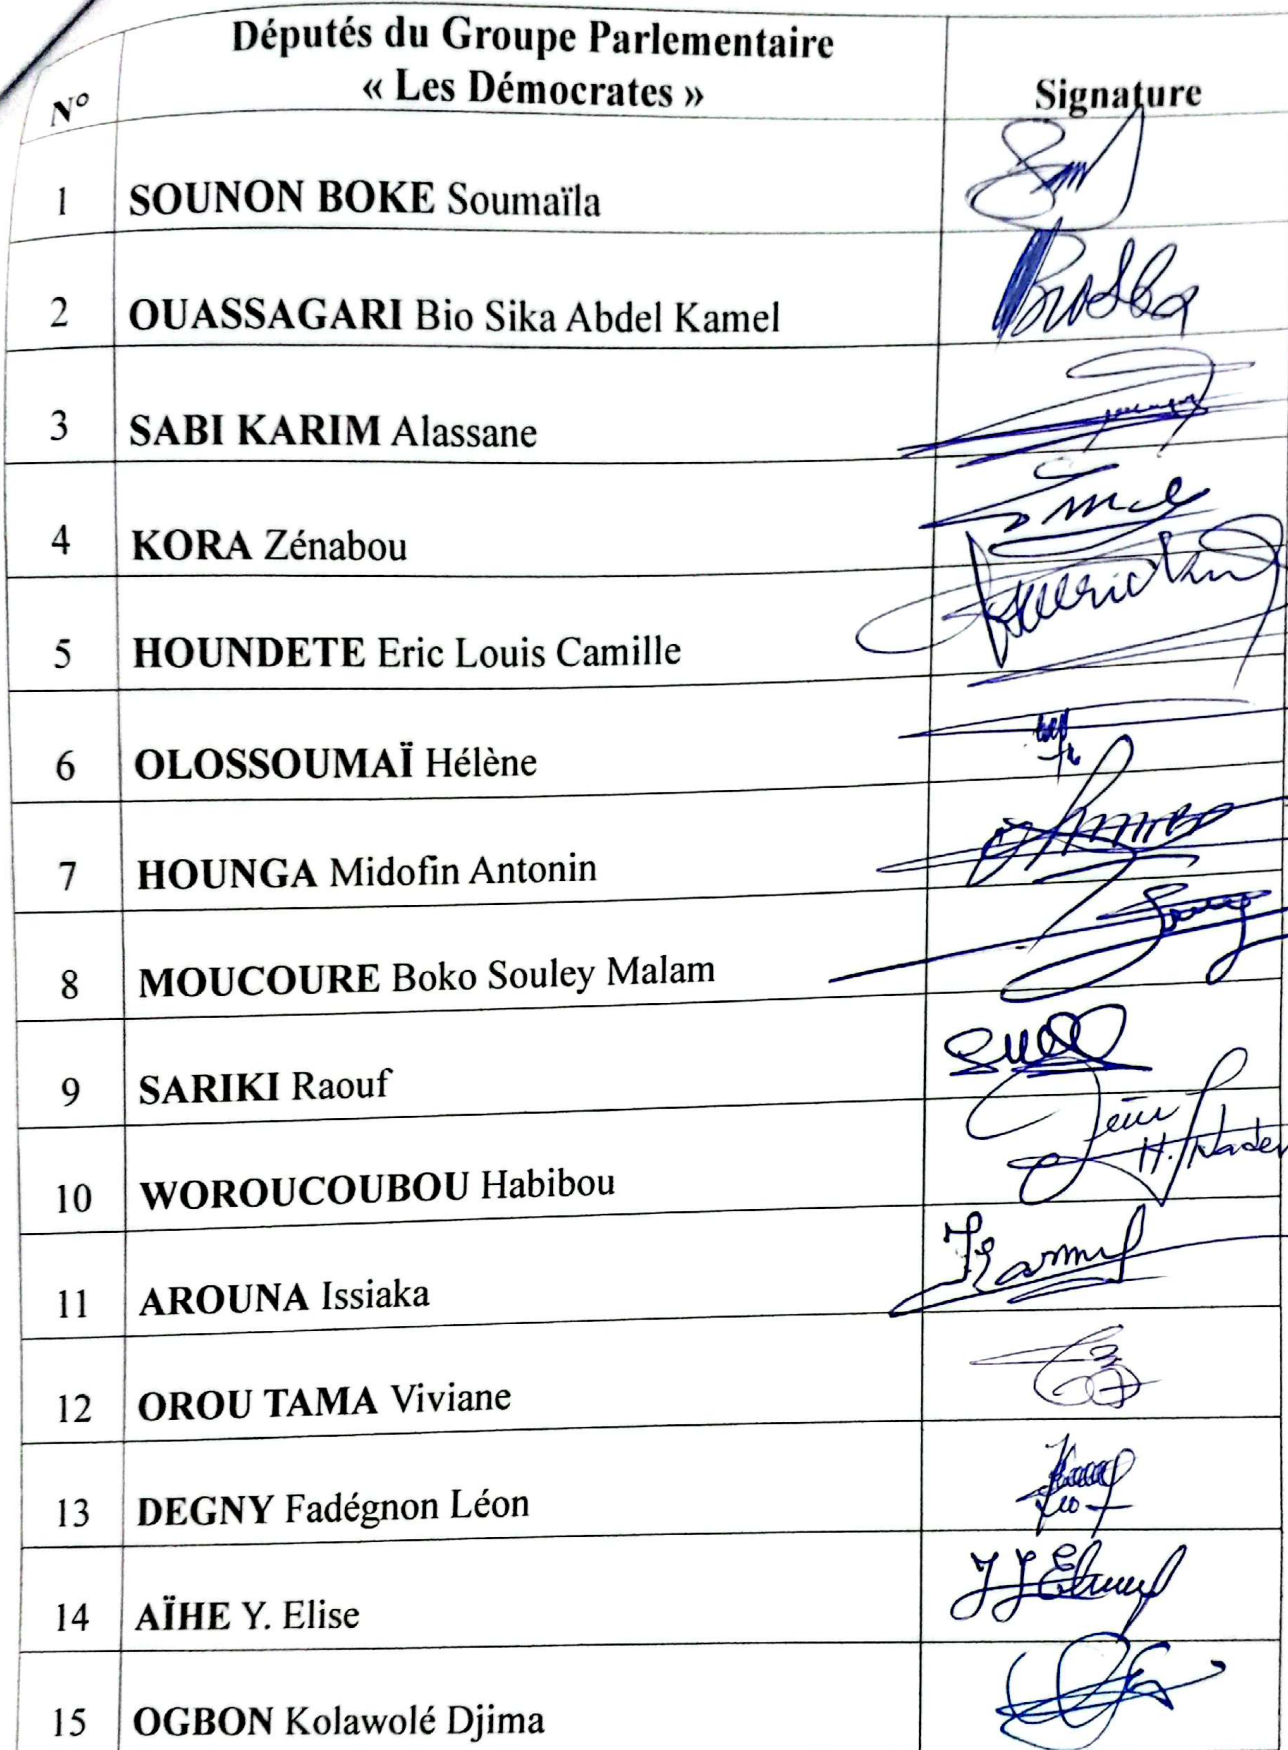 Députés du Groupe Parlementaire
« Les Démocrates »
N° Signature
1 SOUNON BOKE Soumaïla
2 OUASSAGARI Bio Sika Abdel Kamel
3 SABI KARIM Alassane
4 KORA Zénabou
5 HOUNDETE Eric Louis Camille
6 OLOSSOUMAÏ Hélène
7 HOUNGA Midofin Antonin
8 MOUCOURE Boko Souley Malam
9 SARIKI Raouf
10 WOROUCOUBOU Habibou
11 AROUNA Issiaka
12 OROU TAMA Viviane
13 DEGNY Fadégnon Léon
14 AÏHE Y. Elise
15 OGBON Kolawolé Djima